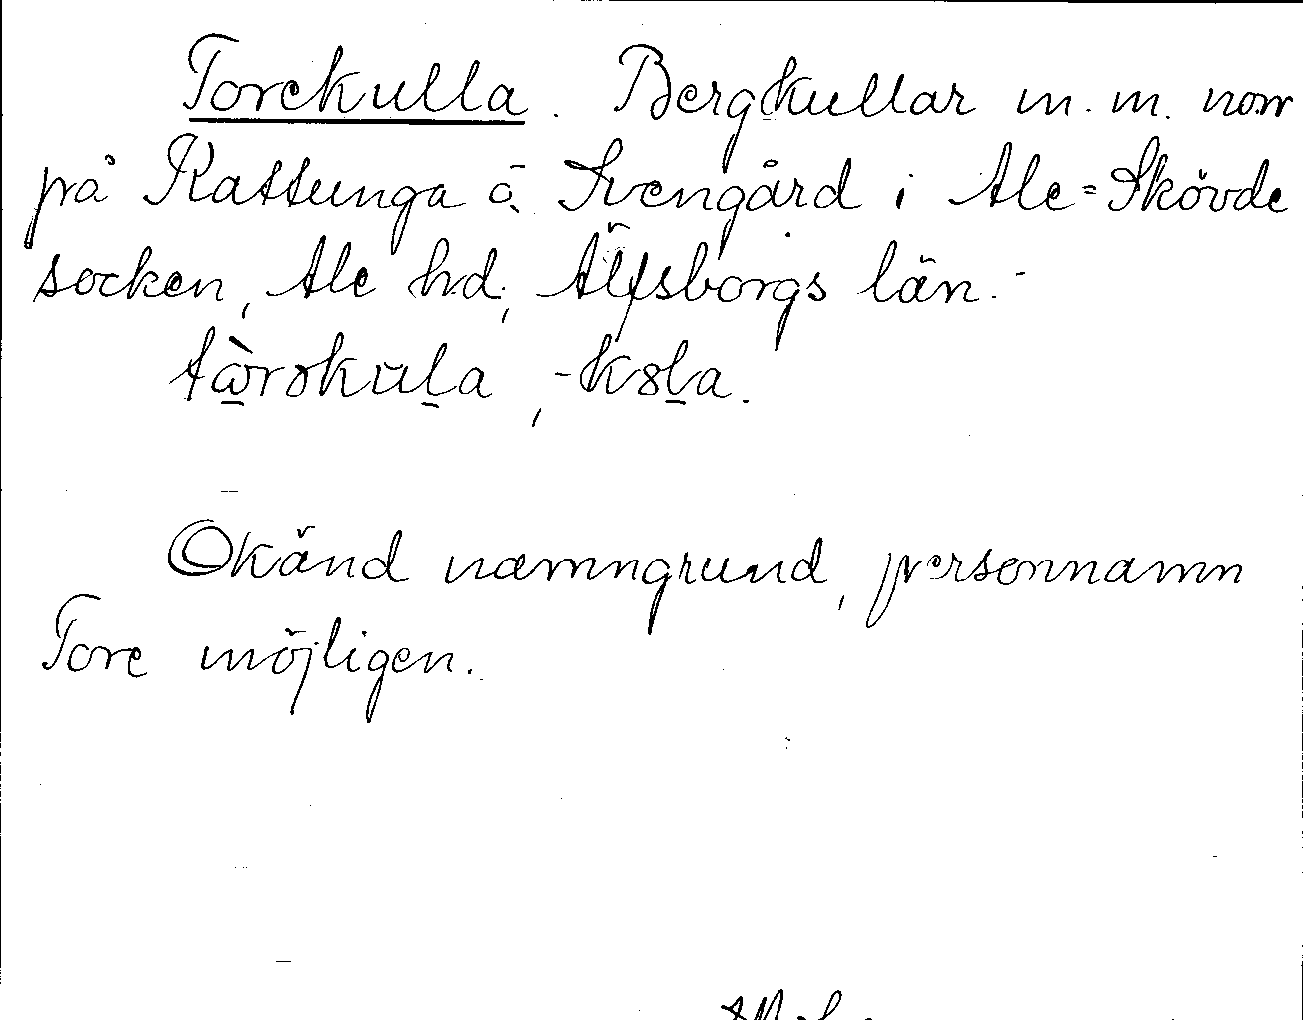 Torekulla. Bergkullar m.m. norr
på Kattunga ä. Svengård i Ale-Skövde
socken, Ale hd, Älfsborgs län.-
Okänd namngrund, personnamn
Tore möjligen.